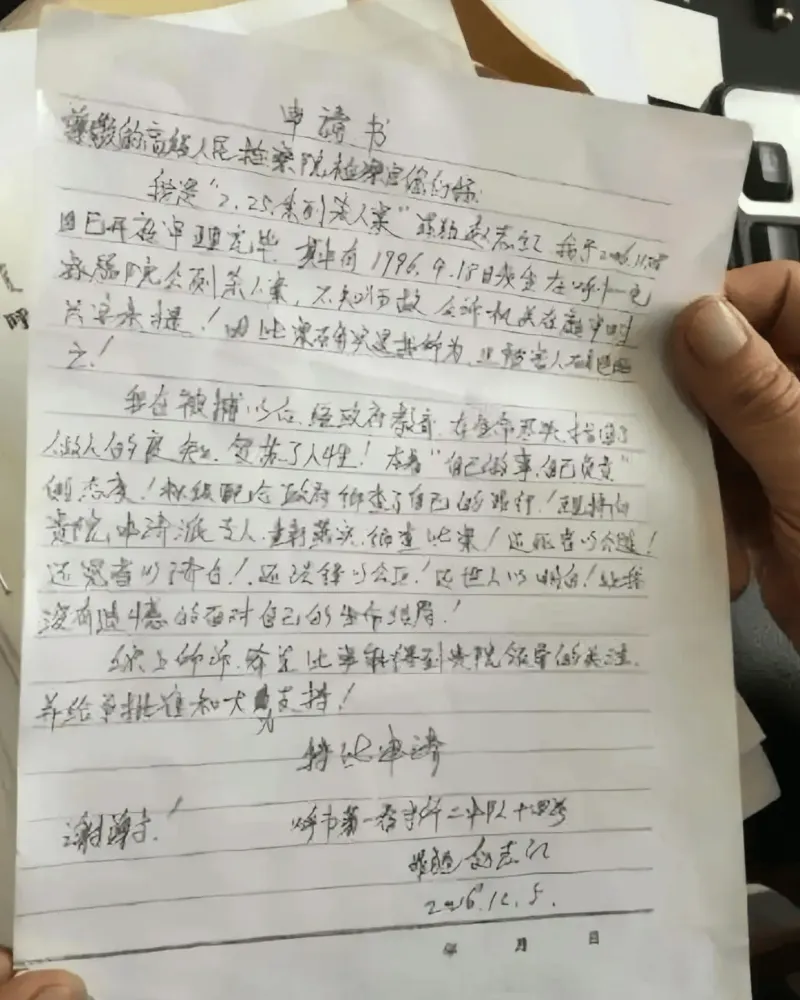 申请书
尊敬的高级人民检察院检察官您们好:
我是"2.25系列杀人案"罪犯赵志红,我于2006.11.28
日已开庭审理完毕。其中有1996.4.18日发生在呼
女厕杀人案,不知何故公诉机关在庭审时
只字未提!因此案确实是我所为,且被害人
之!
我在被捕以后,经政府教育,在生命尽头找回了
做人的良知,复苏了人性!本着"自己做事,自己负责"
的态度!积极配合政府彻查了自己的罪行!现特向
贵院申请派专人重新落实,彻查此案!还死者以公道!
还冤者以清白!还法律以公正!还世人以明白!让我
没有遗憾的面对自己的生命结局!
综上所述,希望此事能得到贵院领导的关注,
并给予批准和大力支持!
特此申请
谢谢! 呼市第一看守所二中队十四号
罪犯 赵志红
2006.12.5.
年 月 日